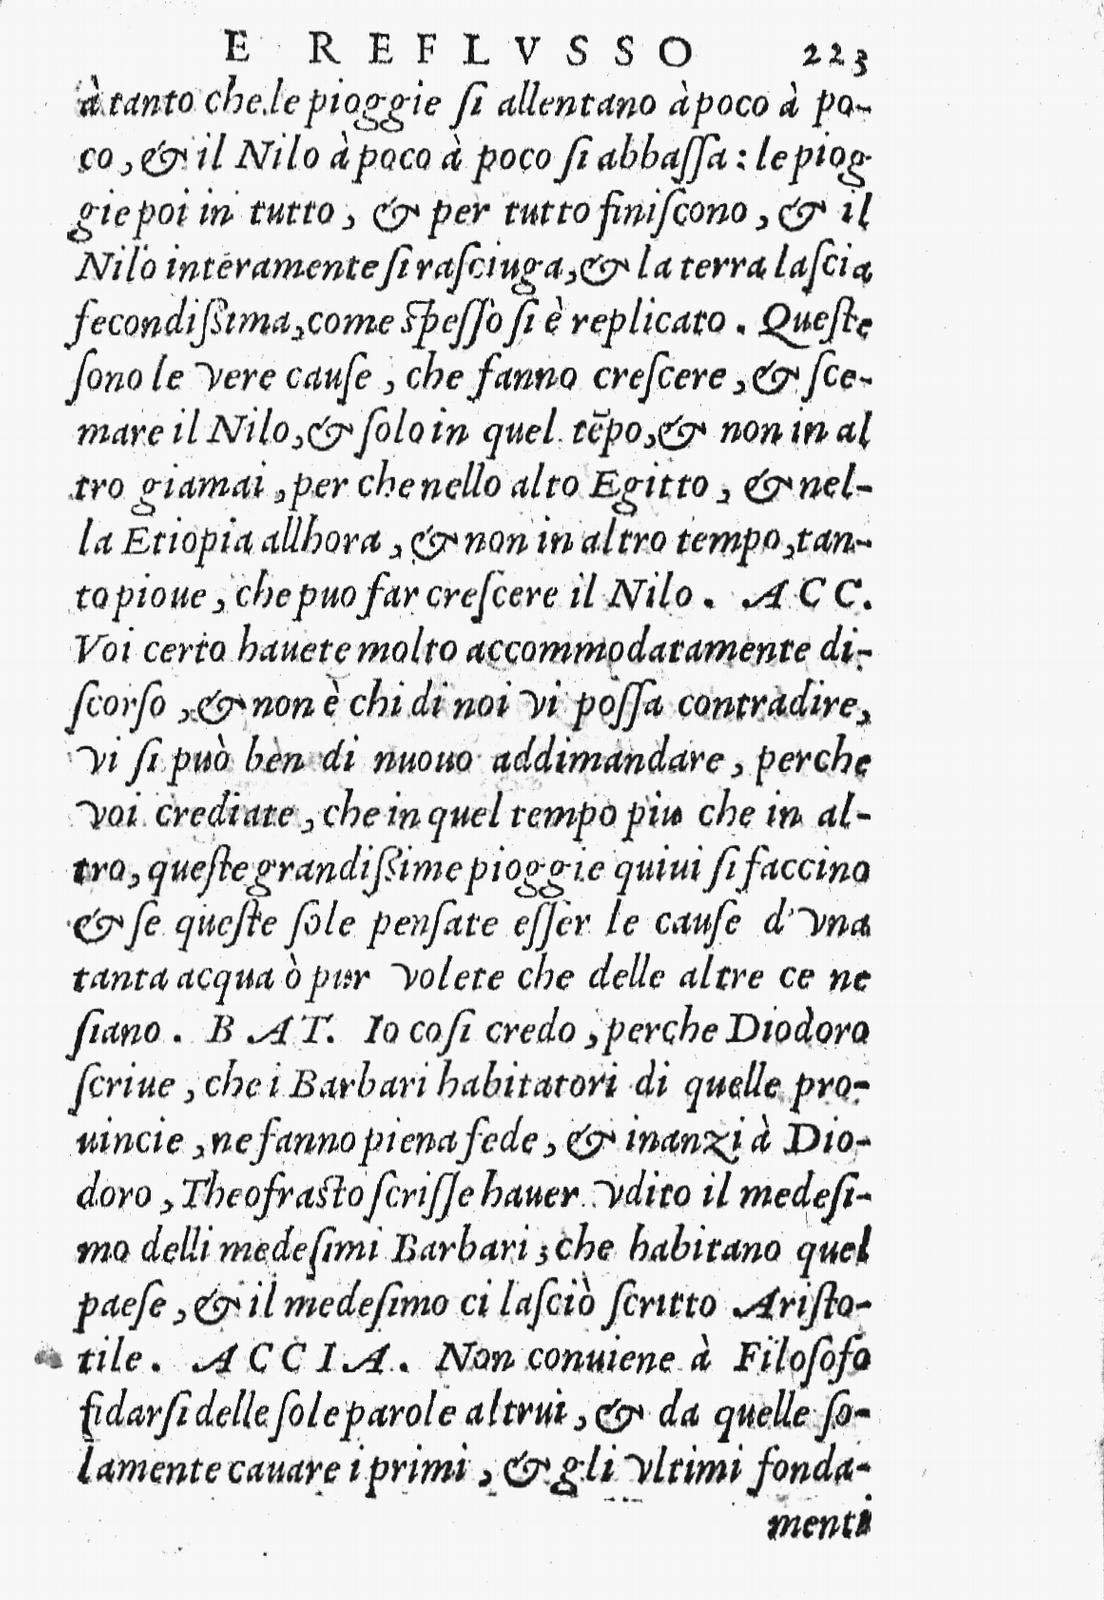 E REFLVSSO 223
à tanto che le pioggie ſi allentano à poco à po-
co, & il Nilo à poco à poco ſi abbaſſa: le piog
gie poi in tutto, & per tutto finiſcono, & il
Nilo interamente ſi raſciuga, & la terra laſcia
fecondiſſima, come ſpeſſo ſi è replicato. Queſte
ſono le vere cauſe, che fanno creſcere, & ſce-
mare il Nilo, & ſolo in quel tēpo, & non in al
tro giamai, per che nello alto Egitto, & nel-
la Etiopia allhora, & non in altro tempo, tan-
to pioue, che puo far creſcere il Nilo. ACC.
Voi certo hauete molto accommodatamente di-
ſcorſo, & non è chi di noi vi poſſa contradire,
vi ſi può ben di nuouo addimandare, perche
voi crediate, che in quel tempo piu che in al-
tro, queſte grandiſſime pioggie quiui ſi faccino
& ſe queſte ſole penſate eſſer le cauſe d'vna
tanta acqua ò pur volete che delle altre ce ne
ſiano. BAT. Io coſi credo, perche Diodoro
ſcriue, che i Barbari habitatori di quelle pro-
uincie, ne fanno piena fede, & inanzi à Dio-
doro, Theofraſto ſcriſſe hauer vdito il medeſi-
mo delli medeſimi Barbari, che habitano quel
paeſe, & il medeſimo ci laſciò ſcritto Ariſto-
tile. ACCIA. Non conuiene à Filoſofo
fidarſi delle ſole parole altrui, & da quelle ſo-
lamente cauare i primi, & gli vltimi fonda-
menti